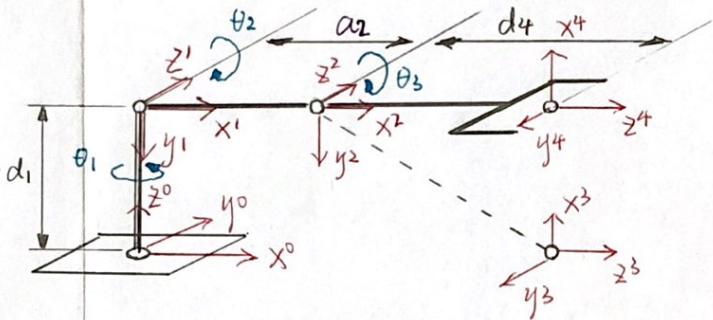 θ2
a2
d4
x4
z1
z2
θ3
x1
x2
z4
y1
y2
y4
d1
θ1
z0
y0
x0
x3
z3
y3